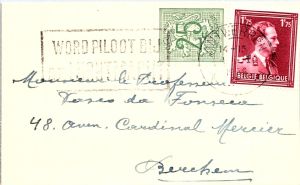 WORD PILOOT BIJ
25
1F75 1F75
BELGIE BELGIQUE
Monsieur le Professeur
Vasco da Fonseca
48. Aven. Cardinal Mercier
Berchem